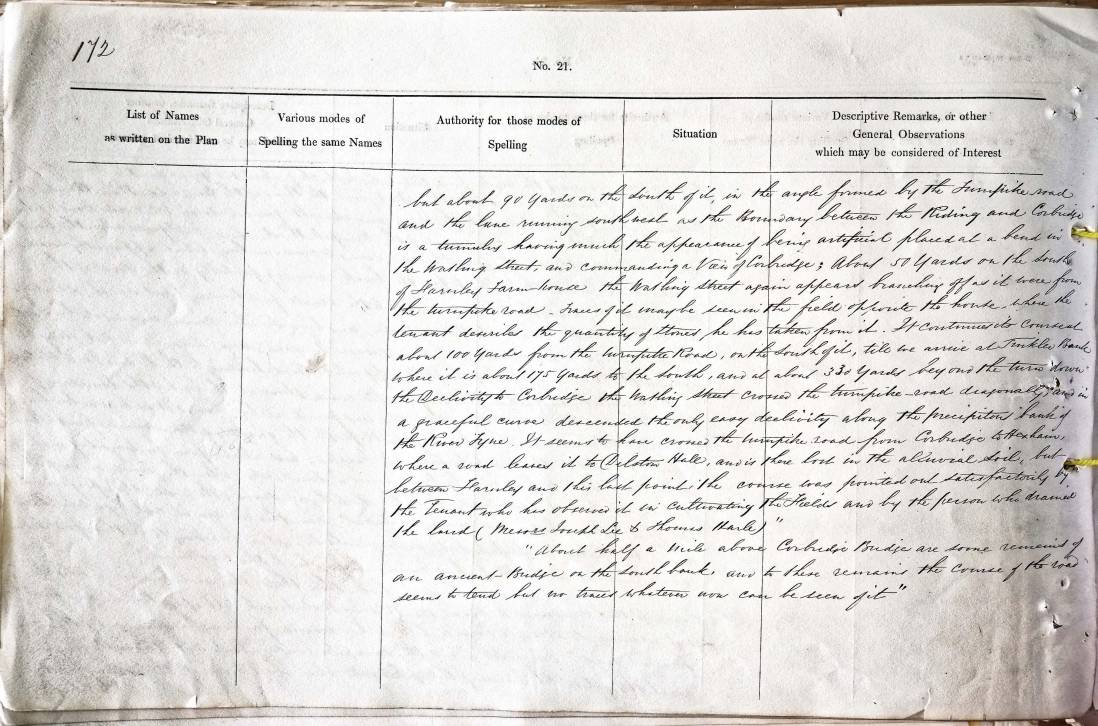 172
No. 21.
List of Names
as written on the Plan
Various modes of
Spelling the same Names
Authority for those modes of
Spelling
Situation
Descriptive Remarks, or other
General Observations
which may be considered of Interest
but about 90 Yards on the South of it, in the angle formed by the Turnpike road
and the lane running southwest as the Boundary between the Riding and Corbridge
is a tumulus having much the appearance of being artificial placed at a bend in
the Watling Street, and commanding a View of Corbridge; About 50 Yards on the South
of Farnley Farm-house the Watling Street again appears branching off as it were from
the turnpike road. Traces of it may be seen in the field opposite the house where the
tenant describes the quantity of stones he has taken from it. It continues its course at
about 100 Yards from the turnpike Road, on the South of it, till we arrive at Tinkler Bank
where it is about 175 Yards to the South, and at about 330 Yards beyond the turn down
the Declivity to Corbridge the Watling Street crossed the turnpike-road diagonally, and in
a graceful curve descended the only easy declivity along the precipitous bank of
the River Tyne. It seems to have crossed the turnpike road from Corbridge to Hexham,
where a road leaves it to Dilston Hall, and is there lost in the alluvial Soil, but
between Farnley and this last point the course was pointed out satisfactorily by
the Tenant who has observed it in cultivating the Fields and by the person who drained
the land (Messrs Joseph Lee & Thomas Harle)"
"About half a Mile above Corbridge Bridge are some remains of
an ancient Bridge on the South bank, and to these remains the course of the road
seems to tend but no traces whatever now can be seen of it"